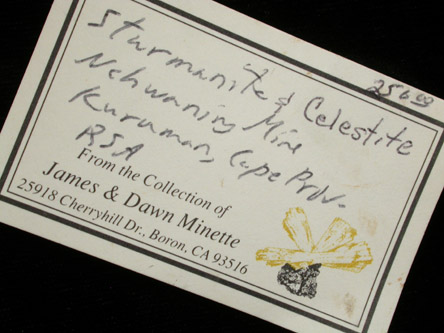 250.00
Sturmanite & Celestite
Nchwaning Mine
Kuruman, Cape Prov.
RSA
From the Collection of
James & Dawn Minette
25918 Cherryhill Dr., Boron, CA 93516